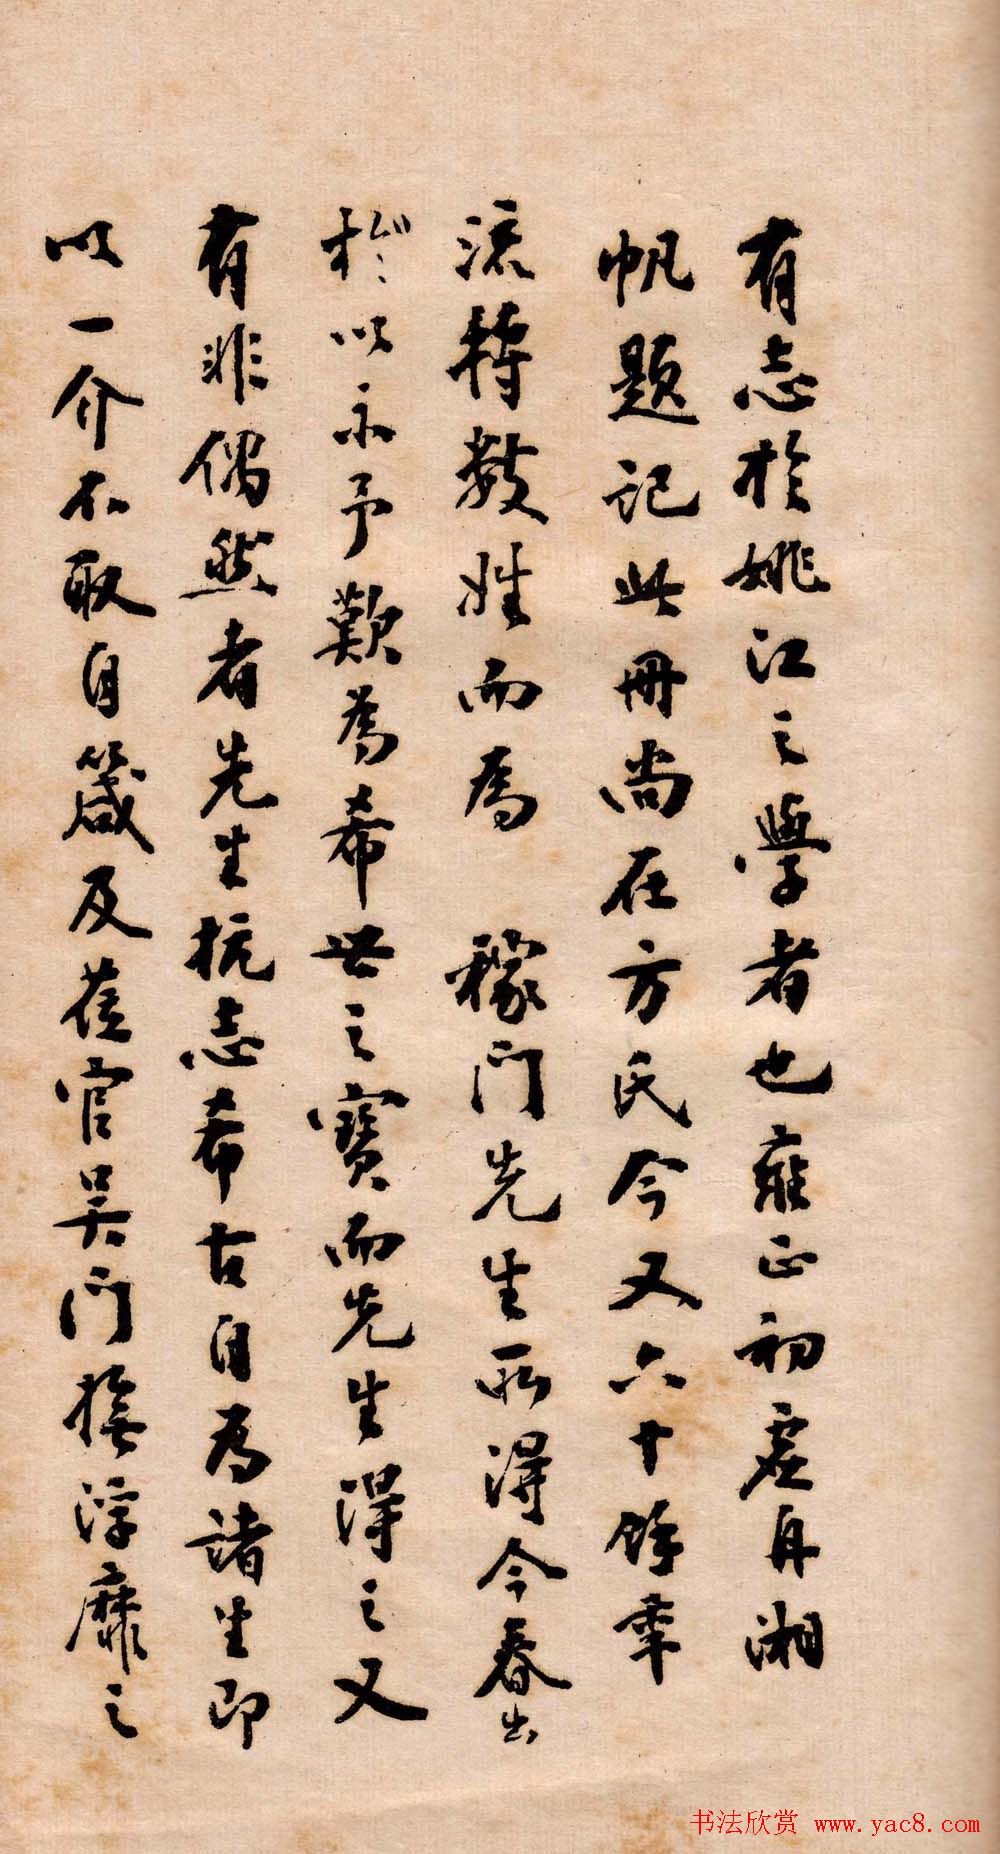 有志於姚江之學者也雍正初虛舟湘
帆題記此冊尚在方氏今又六十餘年
流轉數姓而為 稼門先生所得今春出
於以示予歎為希世之寶而先生得之又
有非偶然者先生抗志希古自為諸生即
以一介不取自箴及莅官吳門撫浮靡之
书法欣赏 www.yac8.com